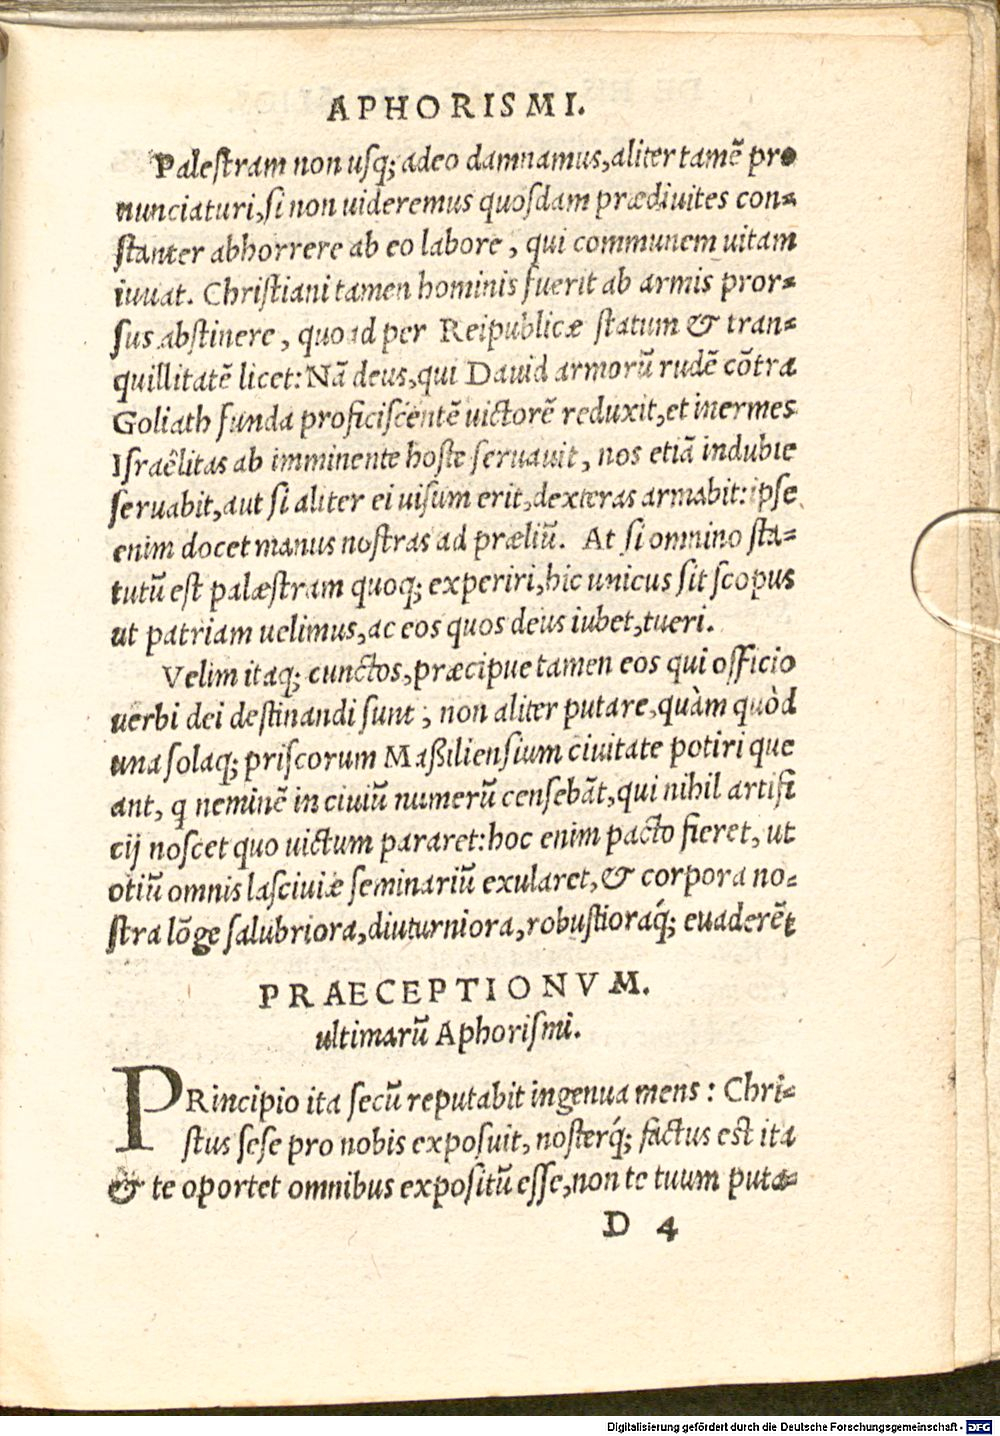 APHORISMI.
Palestram non usq; adeo damnamus, aliter tamẽ pro
nunciaturi, si non uideremus quosdam prædiuites con-
stanter abhorrere ab eo labore, qui communem uitam
iuuat. Christiani tamen hominis fuerit ab armis pror-
sus abstinere, quoad per Reipublicæ statum & tran-
quillitatẽ licet: Nã deus, qui Dauid armorũ rudẽ cõtra
Goliath funda proficiscentẽ uictorẽ reduxit, et inermes
Israêlitas ab imminente hoste seruauit, nos etiã indubie
seruabit, aut si aliter ei uisum erit, dexteras armabit: ipse
enim docet manus nostras ad præliũ. At si omnino sta-
tutũ est palæstram quoq; experiri, hic unicus sit scopus
ut patriam uelimus, ac eos quos deus iubet, tueri.
Velim itaq; cunctos, præcipue tamen eos qui officio
uerbi dei destinandi sunt, non aliter putare, quàm quòd
una solaq; priscorum Maßiliensium ciuitate potiri que
ant, q neminẽ in ciuiũ numerũ censebãt, qui nihil artifi
cij noscet quo uictum pararet: hoc enim pacto fieret, ut
otiũ omnis lasciuiæ seminariũ exularet, & corpora no-
stra lõge salubriora, diuturniora, robustioraq́; euaderẽt
PRAECEPTIONVM.
ultimarũ Aphorismi.
PRincipio ita secũ reputabit ingenua mens: Chri-
stus sese pro nobis exposuit, nosterq́; factus est ita
& te oportet omnibus expositũ esse, non te tuum puta-
D 4
Digitalisierung gefördert durch die Deutsche Forschungsgemeinschaft - DFG